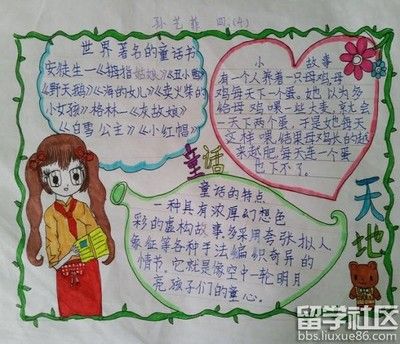 孙艺菲 四.(4)
世界著名的童话书
安徒生—《拇指姑娘》《丑小鸭》
《野天鹅》《海的女儿》《卖火柴的
小女孩》格林—《灰姑娘》
《白雪公主》《小红帽》
小 故事
有一个人养着一只母鸡,母
鸡每天下一个蛋。她以为多
给母鸡喂一些大麦,就会
一天下两个蛋,于是她每天
这样喂,结果母鸡长的越
来越肥,每天连一个蛋
也下不了。
童话
天地
童话的特点
一种具有浓厚幻想色
彩的虚构故事多采用夸张拟人
象征等各种手法编织奇异的
情节。它就是像空中一轮明月
亮孩子们的童心。
留学社区
bbs.liuxue86.com